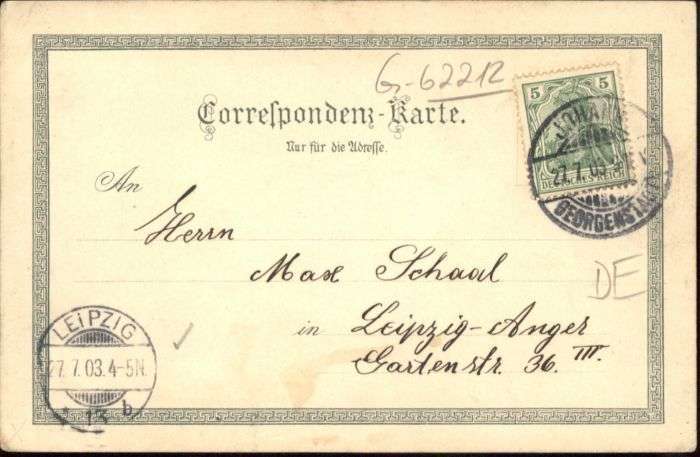 G-62212
Correspondenz-Karte.
Nur für die Adresse.
5 5
DEUTSCHES REICH
27.7.03
GEORGENSTADT
An
Herrn
Max Schaal
in Leipzig-Anger
Gartenstr. 36. III.
DE
LEIPZIG
27.7.03.4-5N.
* 13 b